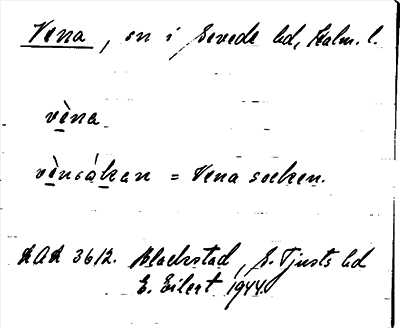 Vena, sn i Sevede hd, Kalm. l.
vèna
vènsákan = Vena socken.
3612. Blackstad, S. Tjusts hd
E. Eilert 1944.